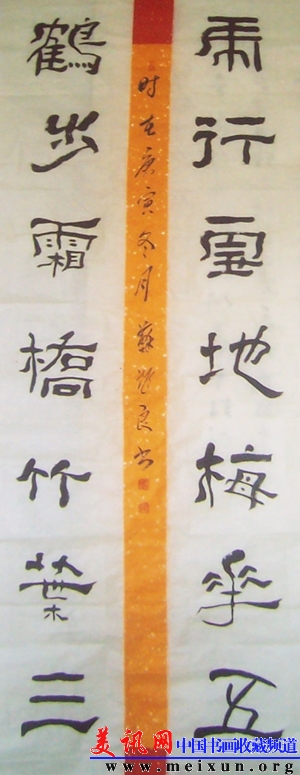 虎行雪地梅華五
时在庚寅冬月蘇良书
鶴步霜橋竹葉三
美訊网 中国书画收藏频道
www.meixun.org